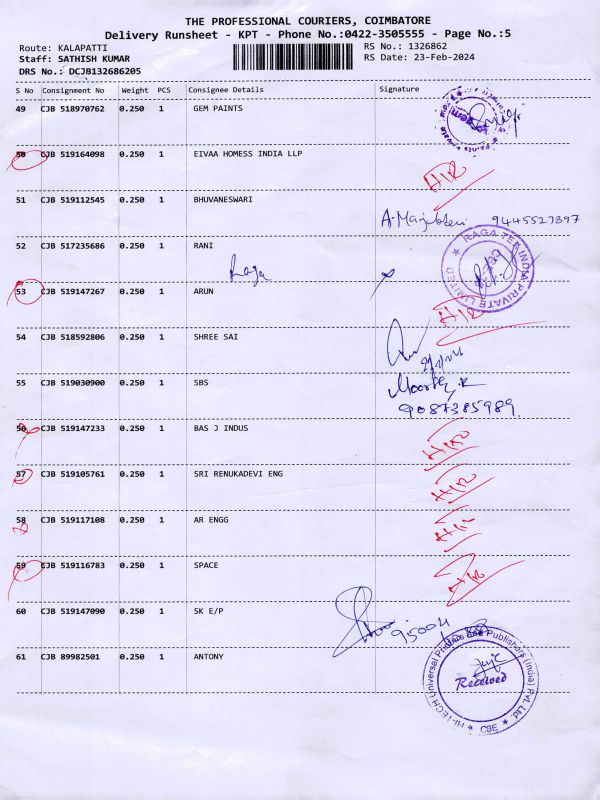 THE PROFESSIONAL COURIERS, COIMBATORE
Delivery Runsheet - KPT - Phone No.:0422-3505555 - Page No.:5
Route: KALAPATTI
RS No.: 1326862
Staff: SATHISH KUMAR
RS Date: 23-Feb-2024
DRS No.: DCJB132686205
S No Consignment No Weight PCS Consignee Details Signature
49 CJB 518970762 0.250 1 GEM PAINTS
50 CJB 519164098 0.250 1 EIVAA HOMESS INDIA LLP
51 CJB 519112545 0.250 1 BHUVANESWARI
9445527897
52 CJB 517235686 0.250 1 RANI
Raja
RAGA TEX INDIA PRIVATE LIMITED
53 CJB 519147267 0.250 1 ARUN
54 CJB 518592806 0.250 1 SHREE SAI
55 CJB 519030900 0.250 1 SBS
9087385989
56 CJB 519147233 0.250 1 BAS J INDUS
57 CJB 519105761 0.250 1 SRI RENUKADEVI ENG
58 CJB 519117108 0.250 1 AR ENGG
59 CJB 519116783 0.250 1 SPACE
60 CJB 519147090 0.250 1 SK E/P
95004
61 CJB 89982501 0.250 1 ANTONY
HI-TECH Universal Printers and Publishers (India) Pvt. Ltd.
Received
CBE